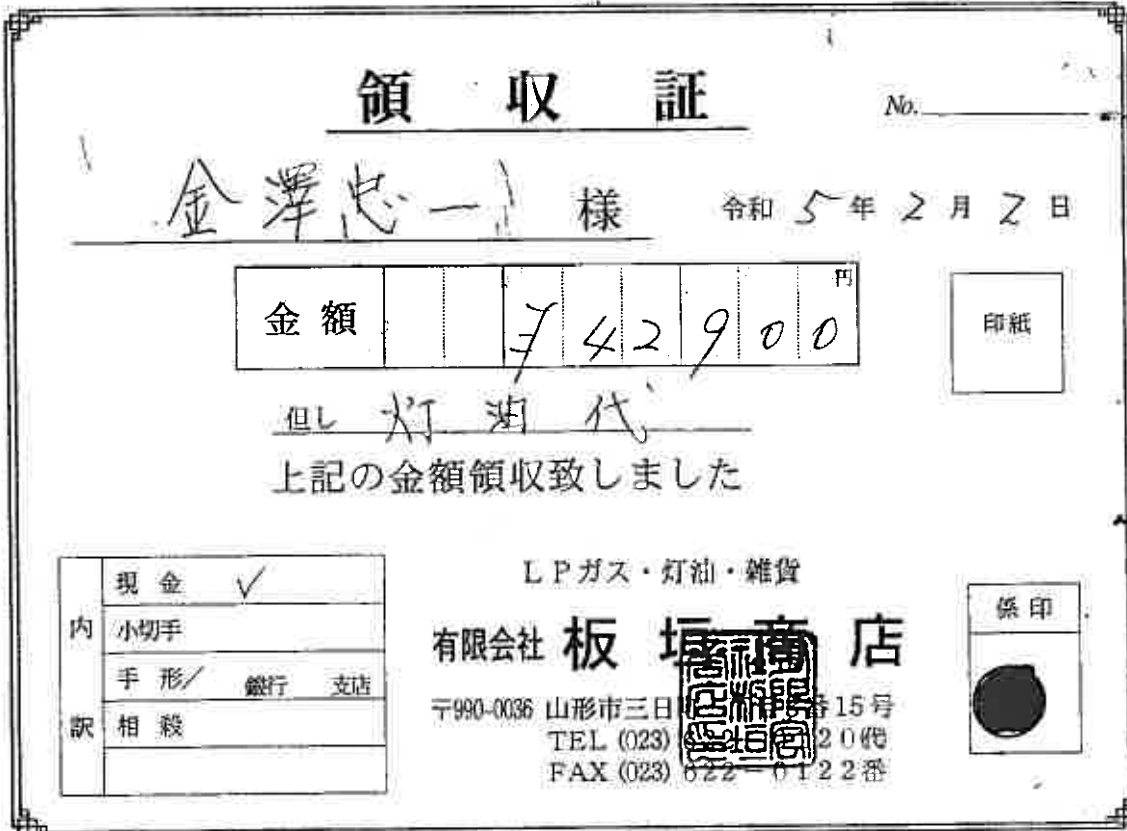 領収証
No.
金澤忠一 様
令和 5年 2月 2日
金額 ¥42900 円
印紙
但し 灯油代
上記の金額領収致しました
内訳
現金 ✓
小切手
手形/ 銀行 支店
相殺
LPガス・灯油・雑貨
有限会社 板垣商店
〒990-0036 山形市三日 番15号
TEL (023) 20代
FAX (023) 622-0122番
係印